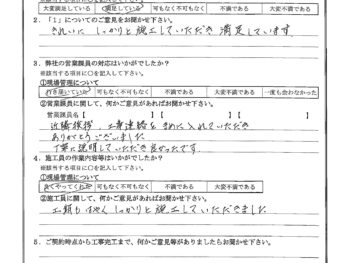 大変満足している 満足している 可もなく不可もなく 不満である 大変不満である
2.「1」についてのご意見をお聞かせ下さい。
きれいに しっかりと施工していただき 満足しています
3.弊社の営業課員の対応はいかがでしたか?
※該当する項目に〇を記入して下さい。
①現場管理について
行き届いていた 可もなく不可もなく 不満である 大変不満である 一度も会わなかった
②営業課員に関して、何かご意見があればお聞かせ下さい。
営業課員名【 】【 】【 】
近隣挨拶、工事連絡など まめに入れていただき
ありがとうございました
丁寧に説明していただき良かったです。
4.施工員の作業内容等はいかがでしたか?
※該当する項目に〇を記入して下さい。
①現場管理について
良くやってくれた 可もなく不可もなく 不満である 大変不満である
②施工員に関して、何かご意見があればお聞かせ下さい。
工期もはやく しっかりと施工していただきました
5.ご契約時点から工事完了まで、何かご意見等がありましたらお聞かせ下さい。